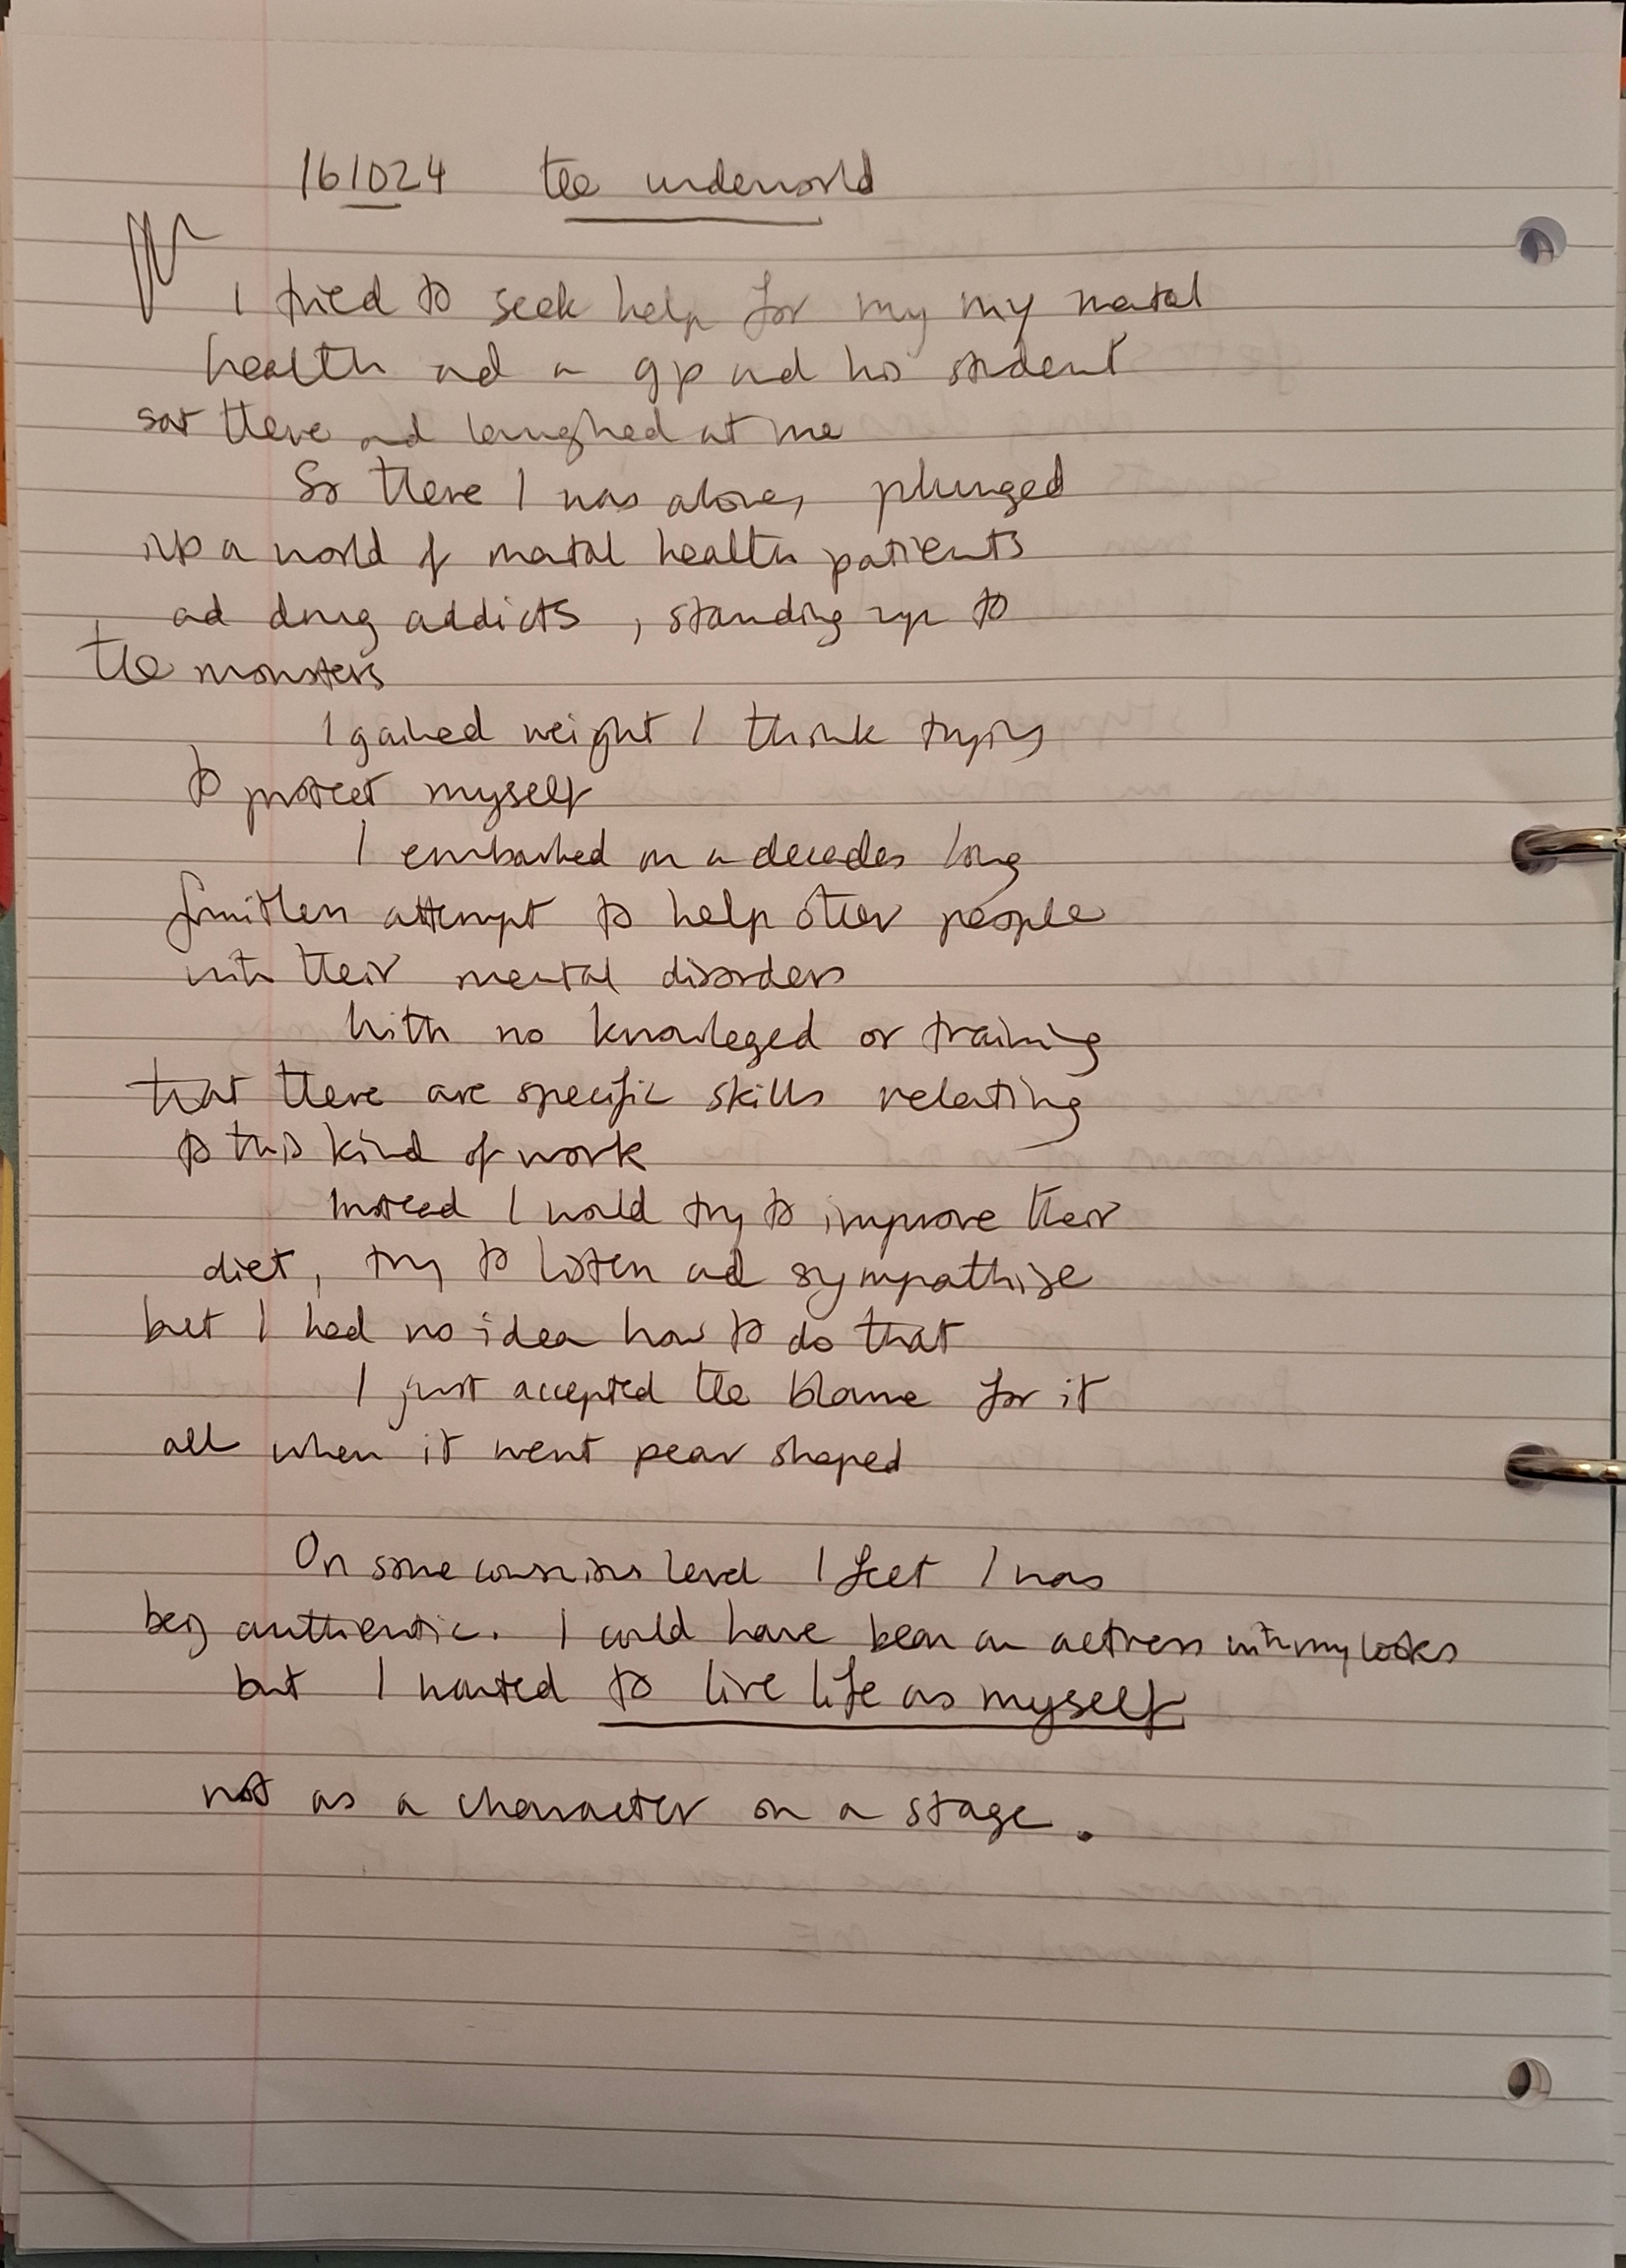 161024 the underworld
I tried to seek help for my my mental
health and a gp and his student
sat there and laughed at me
So there I was alone, plunged
into a world of mental health patients
and drug addicts, standing up to
the monsters
I gained weight I think trying
to protect myself
I embarked on a decades long
fruitless attempt to help other people
with their mental disorders
With no knowleged or training
that there are specific skills relating
to this kind of work
Instead I would try to improve their
diet, try to listen and sympathise
but I had no idea how to do that
I just accepted the blame for it
all when it went pear shaped
On some conscious level I felt I was
being authentic. I could have been an actress with my looks
but I wanted to live life as myself
not as a character on a stage.